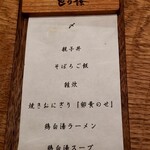 〆
親子丼
そぼろご飯
雑炊
焼きおにぎり【卵黄のせ】
鶏白湯ラーメン
鶏白湯スープ